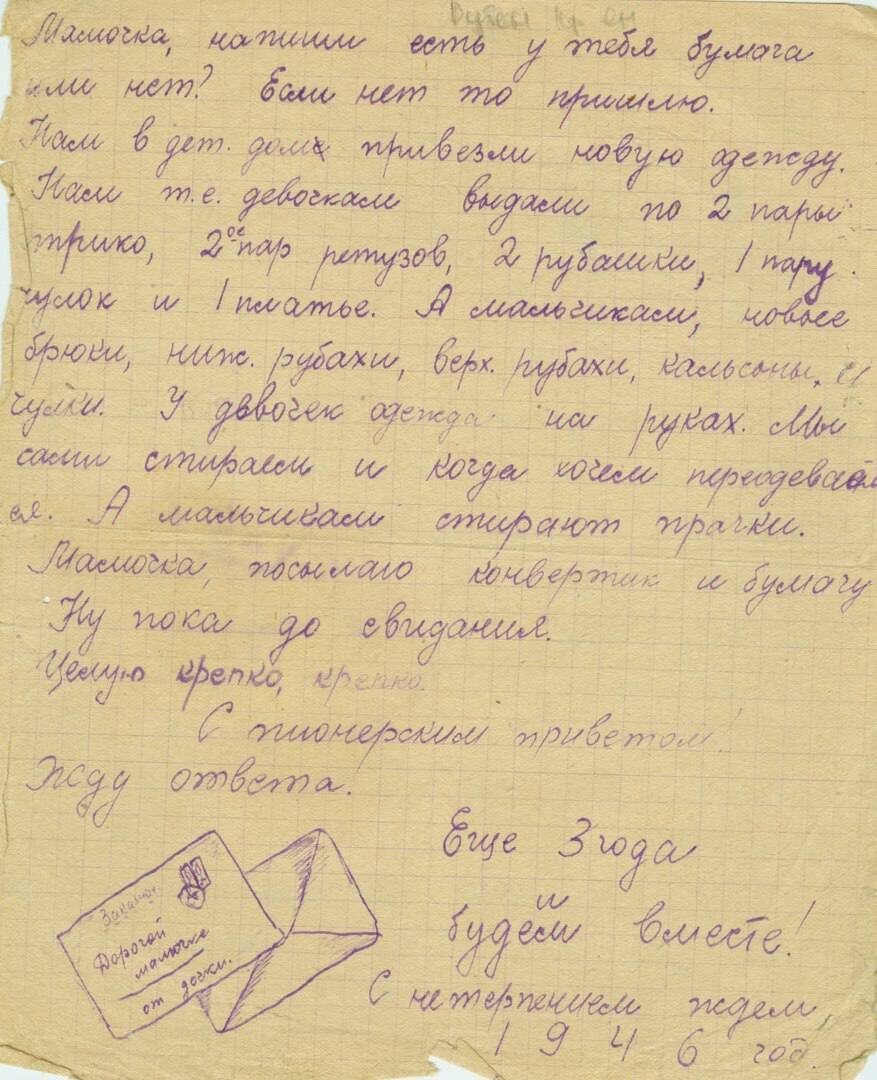 Мамочка, напиши есть у тебя бумага
или нет? Если нет то пришлю.
Нам в дет. дом привезли новую одежду.
Нам т.е. девочкам выдали по 2 пары
трико, 2ое пар ретузов, 2 рубашки, 1 пару
чулок и 1 платье. А мальчикам, новые
брюки, ниж. рубахи, верх. рубахи, кальсоны, и
чулки. У девочек одежда на руках. Мы
сами стираем и когда хочем переодеваем
ся. А мальчикам стирают прачки.
Мамочка, посылаю конвертик и бумагу
Ну пока до свидания.
Целую крепко, крепко.
С пионерским приветом!
Жду ответа.
Еще 3 года
и
будем вместе!
С нетерпением ждем,
1946 год.
Заказное.
Дорогой
мамочке
от дочки.